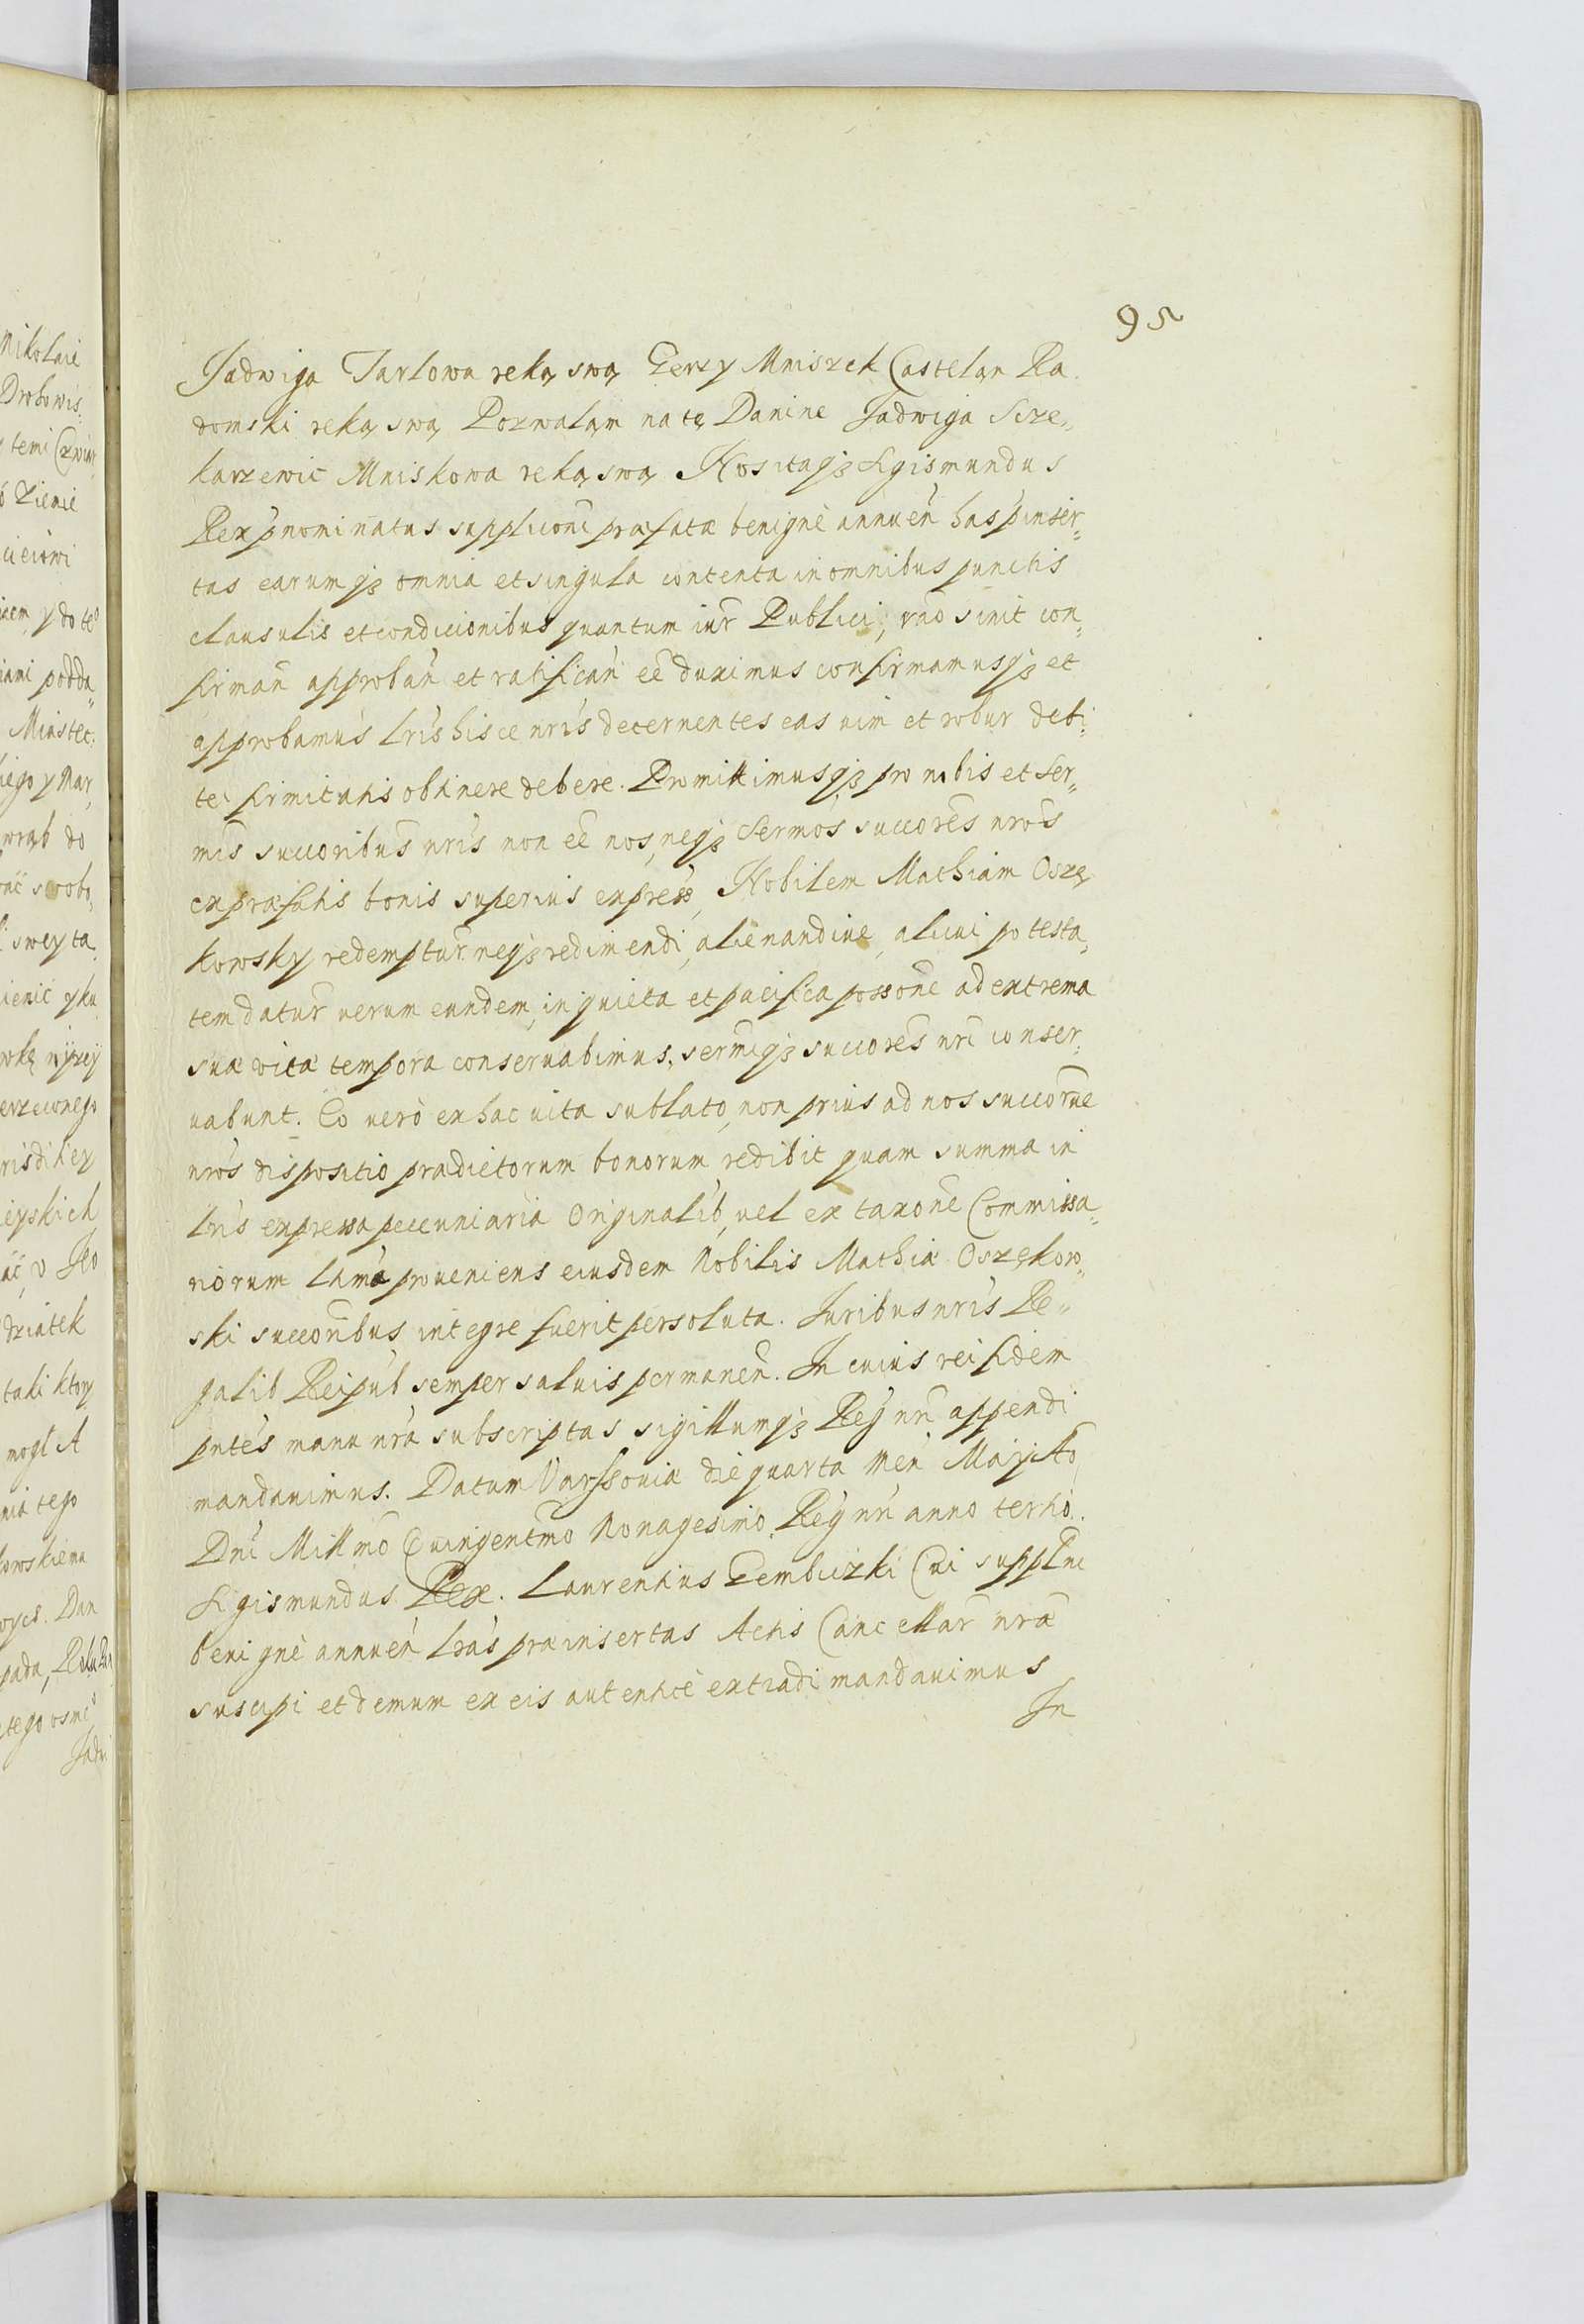 95
Jadwiga Tarłowa ręką swą Jerzy Mniszek Castelan Ra
domski ręką swą Pozwalam na tę Daninę Jadwiga Scze„
karzewic Mniskowa ręką swą Nos itaq₃ Sigismundus
Rex pnominatus suppliconi præfatæ benignè annuen̄ has pinser„
tas earumq₃ omnia et singula contenta in omnibus punctis
clausulis et condicionibus quantum iur̄ Publici, rāo sinit con„
firman̄ approban̄ et ratifican̄ eē duximus confirmamusq₃ et
approbamus Lris hisce nris decernentes eas vim et robur debi:
tei firmitatis obtinere debere. Promittimusq₃ pro nobis et Ser„
mis succoribus nris non eē nos, neq₃ Sermos succores nros
ex præfatis bonis superius express, Nobilem Mathiam Oszę,
kowsky redemptur. neq₃ redimendi, alienandiue, alicui potesta,
tem datur̄ verum eundem, in quieta et pacifica possone ad extrema
suæ vitæ tempora conseruabimus, sermiq₃ succores nri conser„
uabunt. Eo verò ex hac vita sublato, non prius ad nos succorue
nros dispositio prædictorum bonorum redibit quam summa in
Lris expressa pecuniaria Originalib, vel ex taxone Commissa„
riorum Lama proueniens eiusdem Nobilis Mathiæ Oszękow„
ski succoribus integre fuerit persoluta. Juribus nris Re„
galib Reipub semper saluis permanen̄. In cuius rei fidem
pntes manu nra subscriptas sigillumq₃ Regn nri appendi
mandauimus. Datum Varssouiæ die quarta Men Maij Ao
Dni Millmo Quingentmo Nonagesimo. Regn nri anno tertio.
Sigismundus Rex. Laurentius Gembiczki Cui supplni
benignè annuen̄ Lras præinsertas Actis Cancellar̄ nræ
suscipi et demum ex eis autenticè extradi mandauimus
In